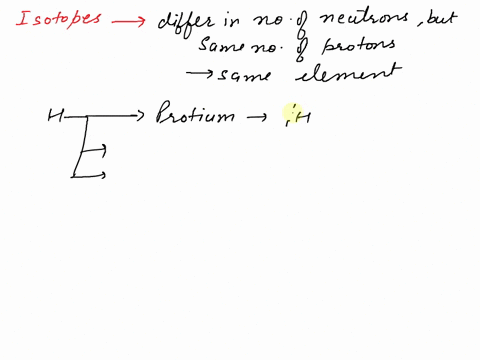 Isotopes → differ in no. of neutrons, but
same no. of protons
→ same element
H → Protium → ¹₁H